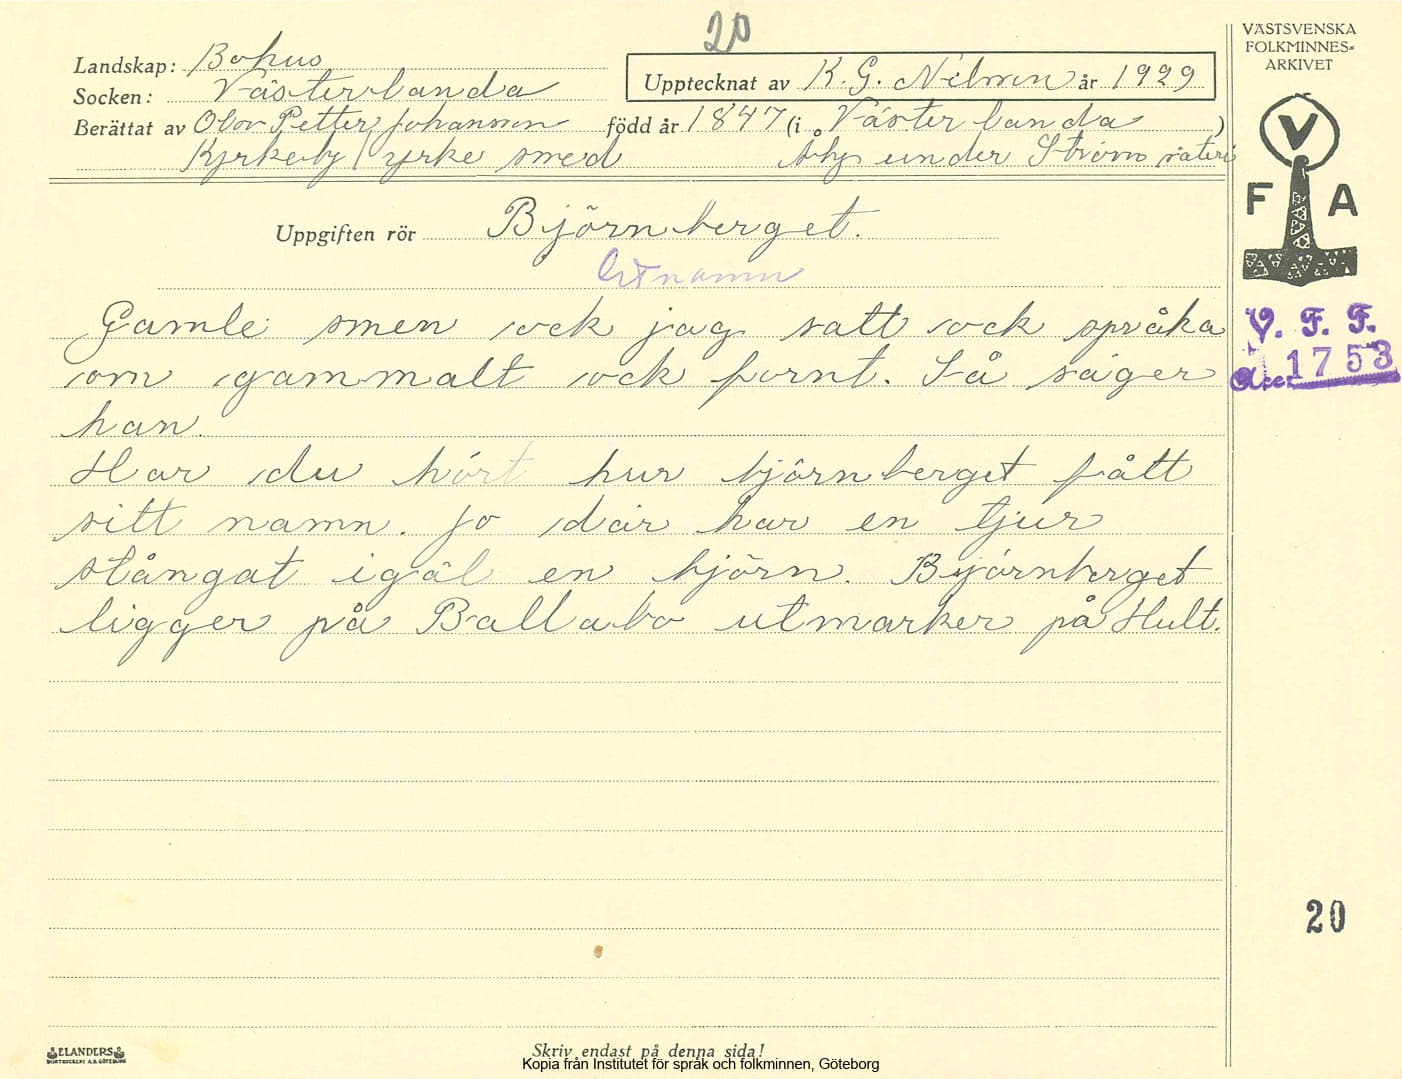 20
VÄSTSVENSKA
FOLKMINNES-
ARKIVET
Landskap: Bohus
Upptecknat av K. G. Nilsson år 1929
Socken: Västerlanda
Berättat av Olov Petter Johansson född år 1847 (i Västerlanda)
Kyrkeby yrke smed Åby under Ström säteri
V
F A
Uppgiften rör Björnberget.
Ortnamn
Gamle smen ock jag satt ock språka
om gammalt ock fornt. Så säger
han.
Har du hört hur björnberget fått
sitt namn. Jo där har en tjur
stångat igäl en björn. Björnberget
ligger på Ballabo utmarker på Hult.
V. F. F.
Acc. 1753
20
ELANDERS
BOKTRYCKERI A.B. GÖTEBORG
Skriv endast på denna sida!
Kopia från Institutet för språk och folkminnen, Göteborg